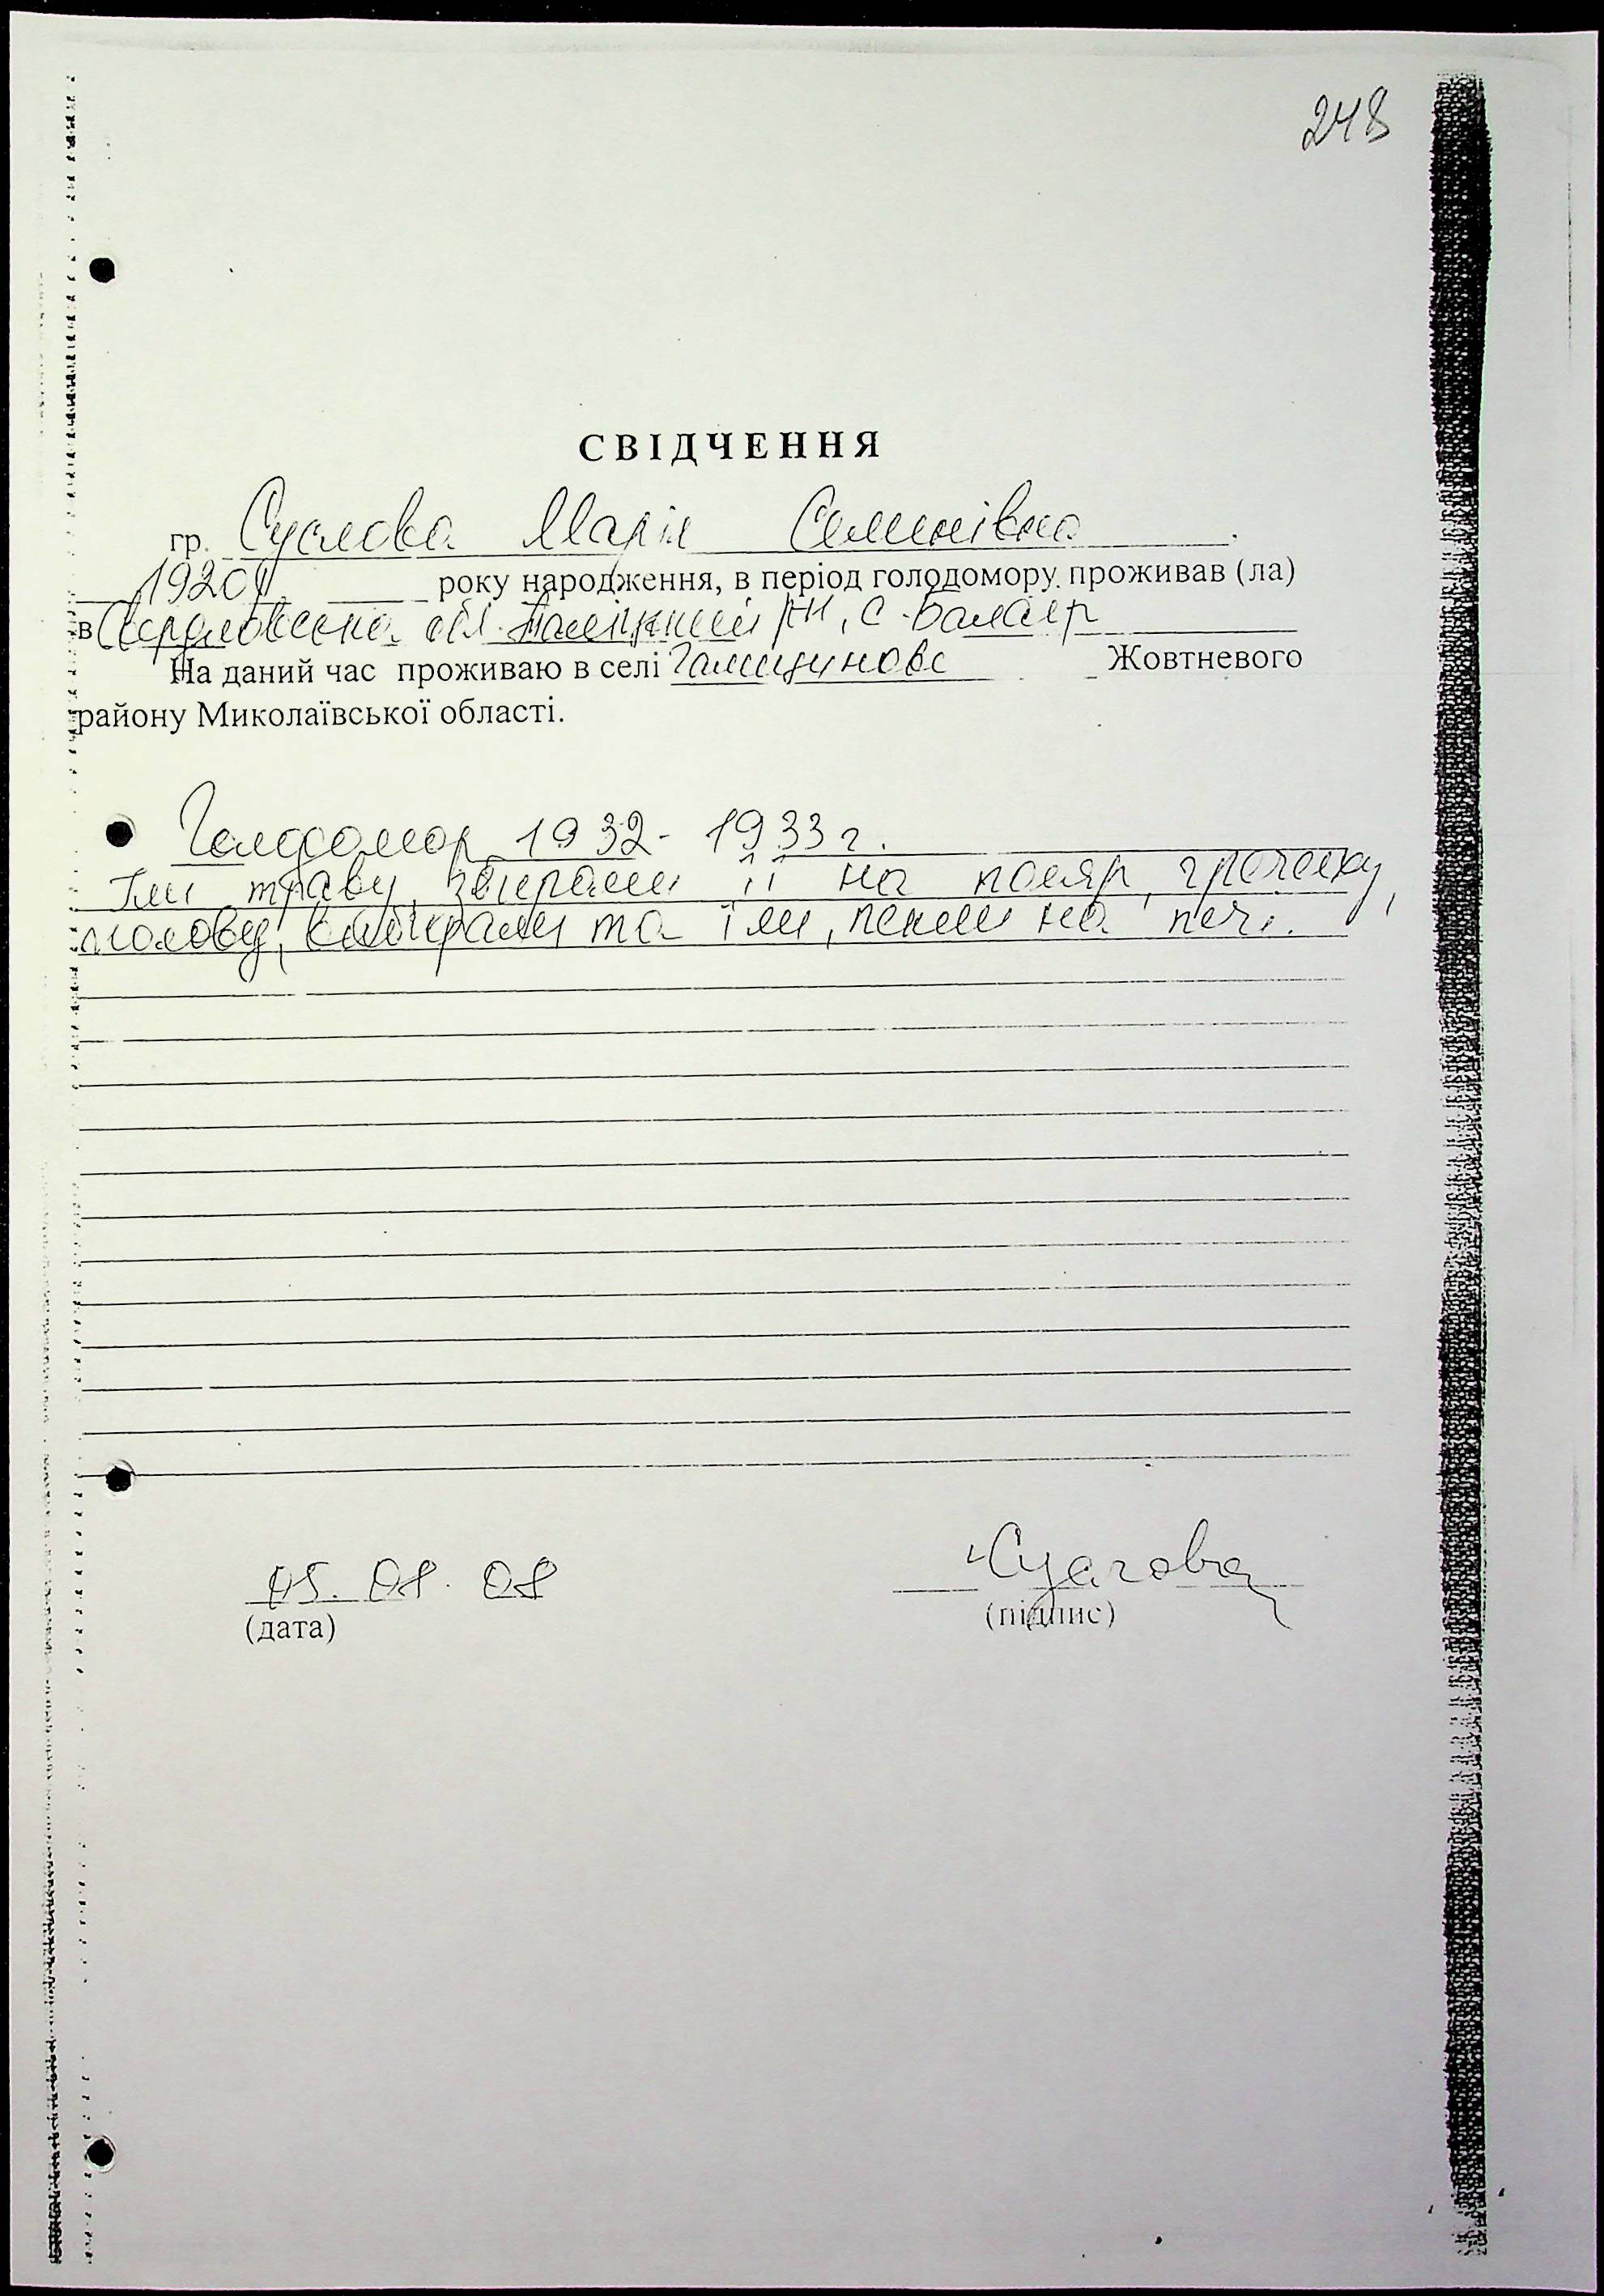 248
СВІДЧЕННЯ
гр. Суслова Марія Семенівна
1920 року народження, в період голодомору проживав (ла)
в Свердловська обл. Таліцький рн, с. Балаїр
На даний час проживаю в селі Галициново Жовтневого
району Миколаївської області.
Голодомор 1932-1933 г.
Їли траву, збирали її на полях, гречку,
полову, вибирали та їли, пекли на печі.
05. 08. 08 Суслова
(дата) (підпис)